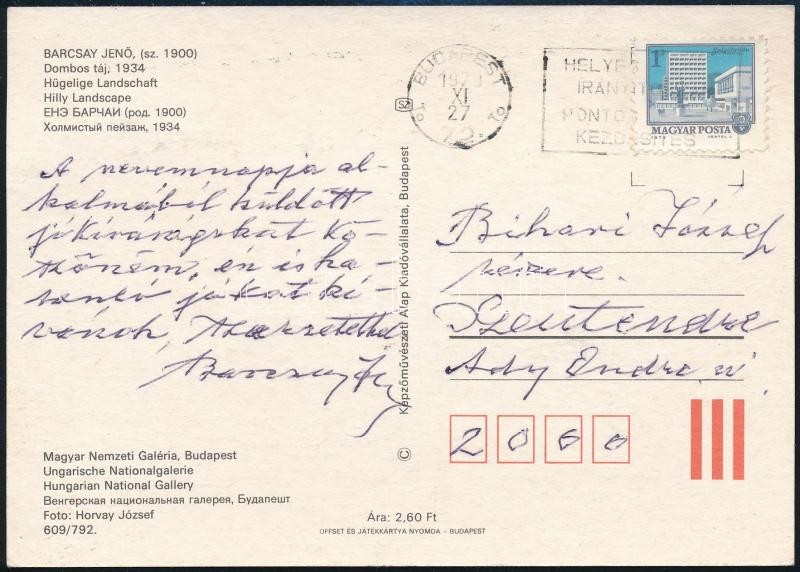 BARCSAY JENŐ, (sz. 1900)
Dombos táj, 1934
Hügelige Landschaft
Hilly Landscape
ЕНЭ БАРЧАИ (род. 1900)
Холмистый пейзаж, 1934
A nevemnapja al-
kalmából küldött
jókívánságokat kö-
szönöm, én is ha-
sonló jókat kí-
vánok, szeretettel
Barcsay Jenő
Magyar Nemzeti Galéria, Budapest
Ungarische Nationalgalerie
Hungarian National Gallery
Венгерская национальная галерея, Будапешт
Foto: Horvay József
609/792.
Ára: 2,60 Ft
OFFSET ÉS JÁTÉKKÁRTYA NYOMDA – BUDAPEST
© Képzőművészeti Alap Kiadóvállalata, Budapest
SZ
BUDAPEST
XI
27
72
HELYES
IRÁNYÍT
PONTOS
KÉZBESÍTÉS
1Ft
MAGYAR POSTA
Bihari József
részére.
Szentendre
Ady Endre u.
2000